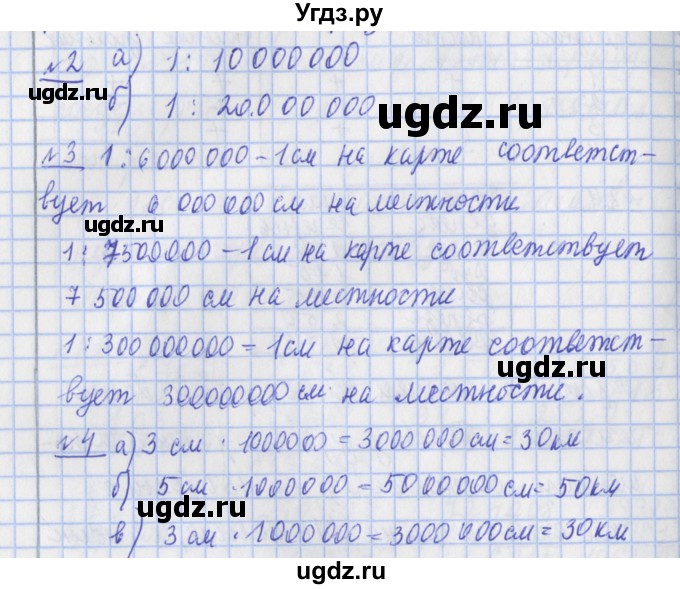 Угдз.ру
№2 а) 1 : 10 000 000
ugdz.ru
б) 1 : 20.000 000
ugdz.ru
№3 1 : 6 000 000 – 1 см на карте соответст-
вует 6 000 000 см на местности
ugdz.ru
1 : 7500000 – 1 см на карте соответствует
7 500 000 см на местности
1 : 300 000 000 – 1 см на карте соответст-
ugdz.ru
вует 300000000 см на местности.
№4 а) 3 см · 1000000 = 3000 000 см = 30 км
б) 5 см · 1000000 = 5000000 см = 50 км
ugdz.ru
в) 3 см · 1000 000 = 3000 000 см = 30 км
ugdz.ru
ugdz.ru